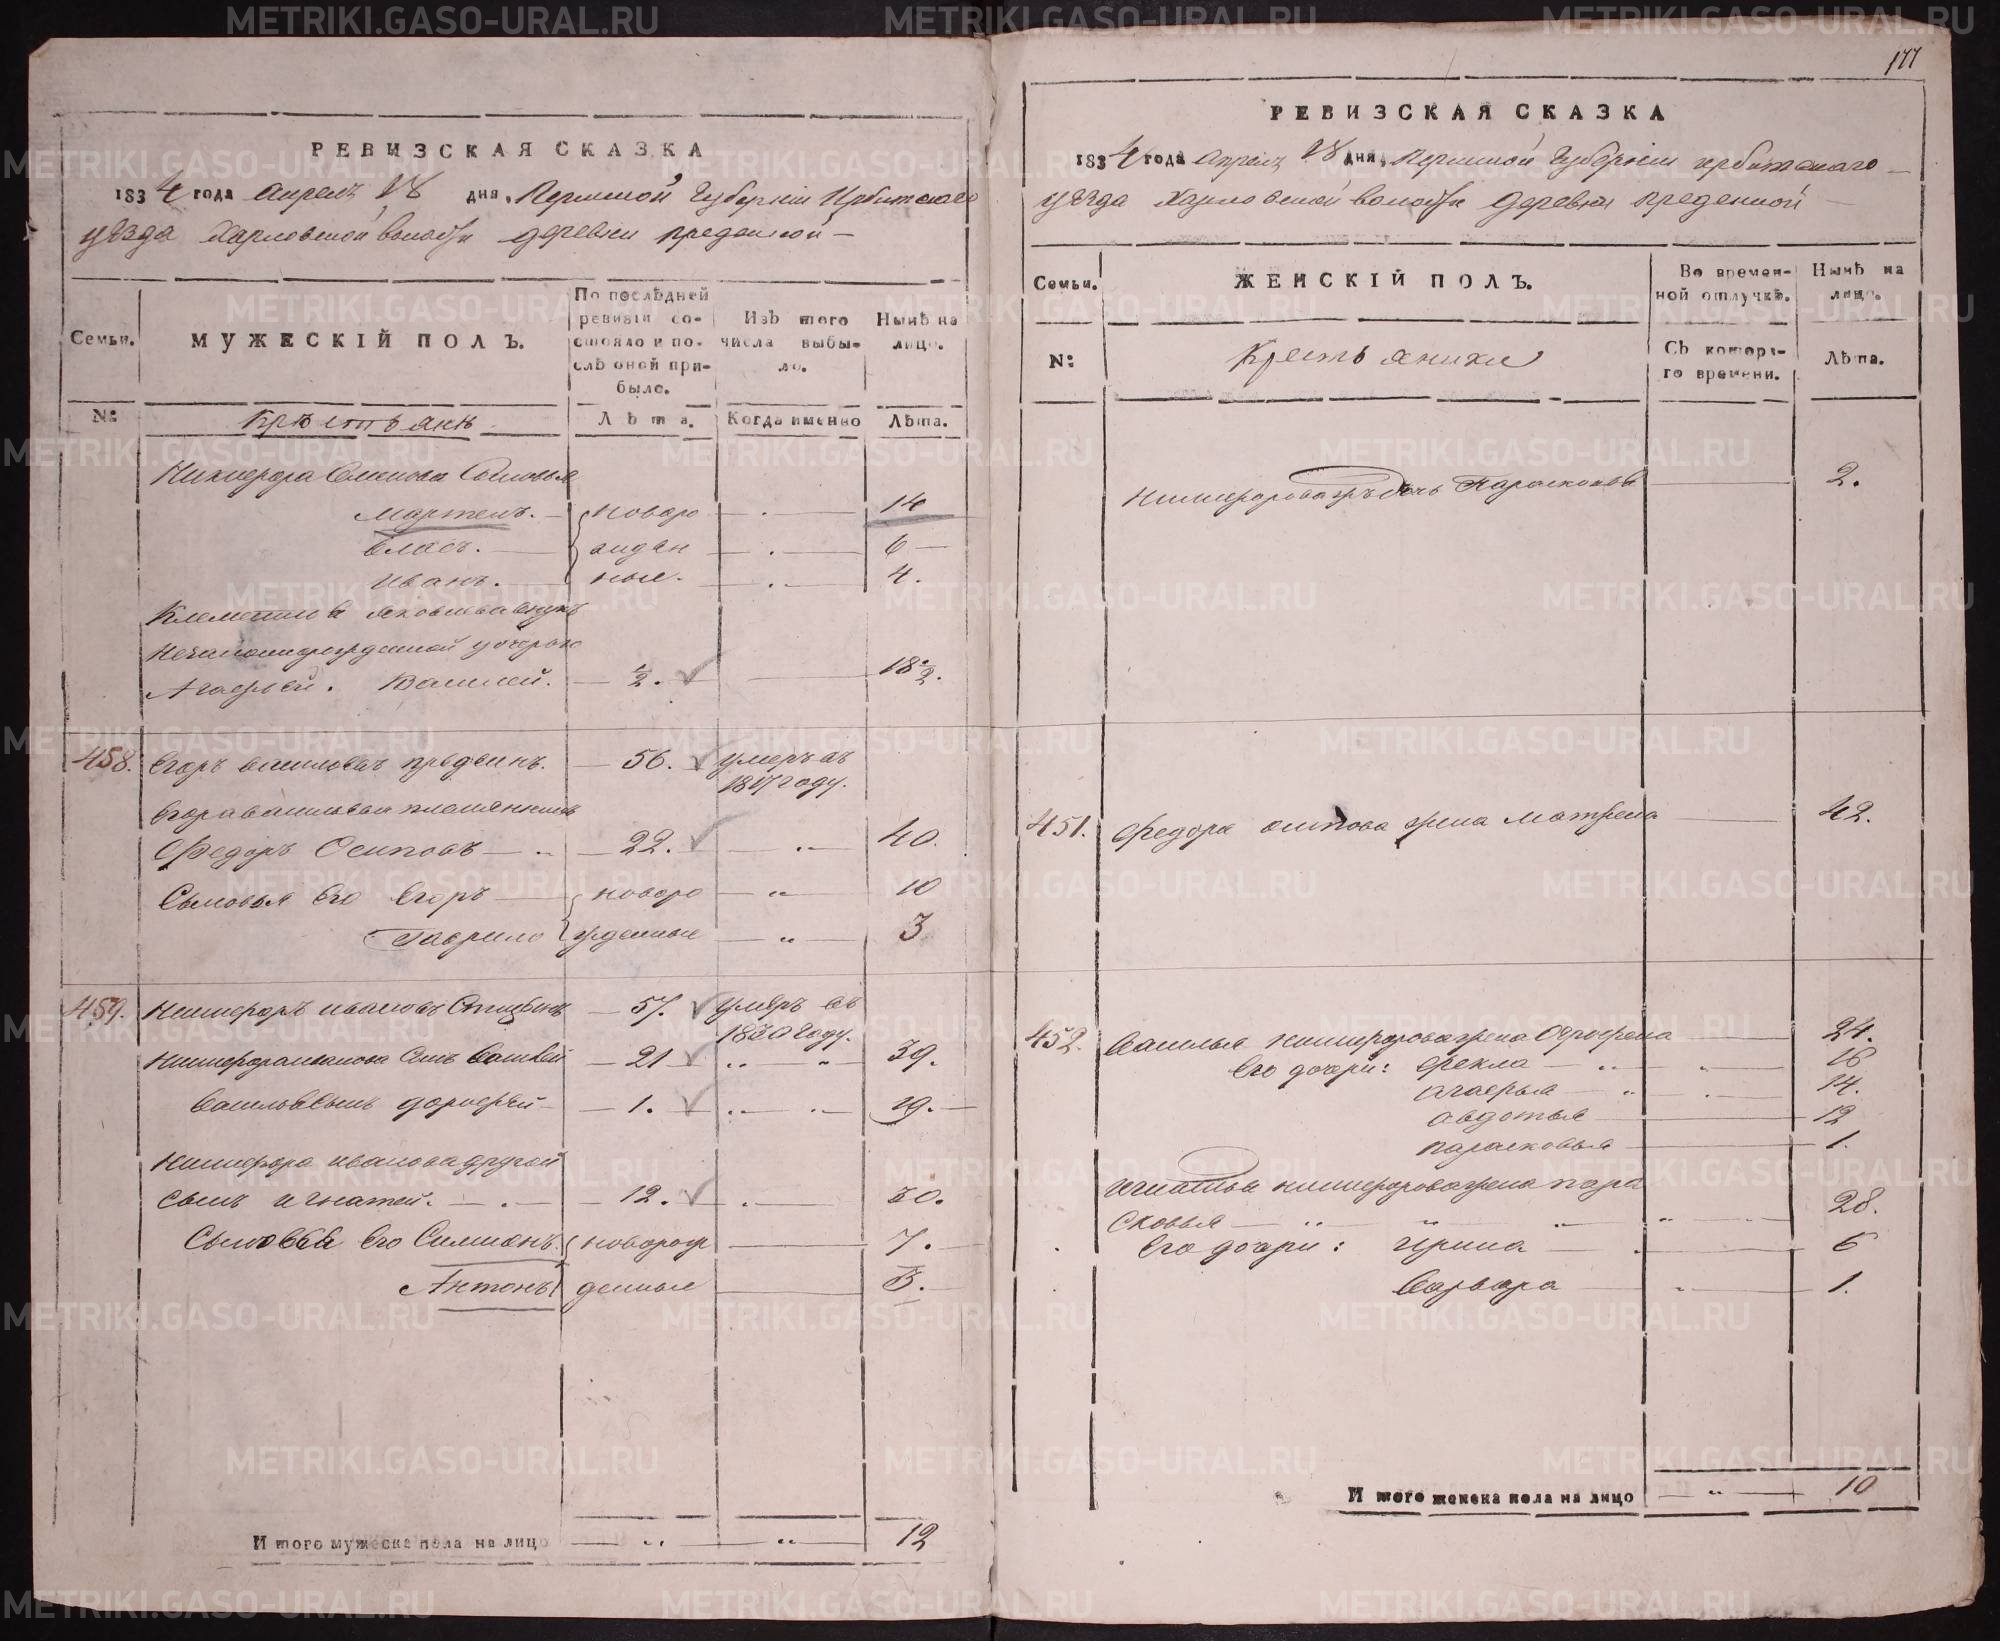 РЕВИЗСКАЯ СКАЗКА
1834 года апреля 28 дня, Пермской Губернiи Ирбитскаго
уѣзда Харловской волости деревни предеиной
Семьи.
МУЖЕСКІЙ ПОЛЪ.
По послѣдней ревизіи состояло и послѣ оной прибыло.
Изъ того числа выбыло.
Нынѣ на лицо.
№:
Крестьянѣ
Лѣта.
Когда именно
Лѣта.
Никифора сыновья
Мартенъ. новоро 14
Власъ. жден 6
Иванъ. ные. 4.
Клементiя Яковлева внукъ
незаконнорожденной дочерью
Агафьей. Василей. 1/2. 18 1/2.
458. Егоръ васильевъ предеинъ. 56. умеръ въ
1817 году.
Егора васильева племянникъ
Федоръ Осиповъ 22. 40.
Сыновья Его Егоръ новоро 10
Гаврило жденные 3
459. Никифоръ ивановъ 57. умеръ въ
1830 году.
Никифора иванова Сынъ Василей 21 39.
Васильевъ Сынъ дорофей 1. 19.
Никифора иванова другой
сынъ игнатей. 12. 30.
Сыновья Его Симионъ новорож 7.
Антонъ денные 3.
Итого мужеска пола на лицо 12
177
РЕВИЗСКАЯ СКАЗКА
1834 года апреля 28 дня, Пермской Губернiи ирбитскаго
уѣзда Харловской волости деревни предеиной
Семьи.
ЖЕНСКІЙ ПОЛЪ.
Во временной отлучкѣ.
Нынѣ на лицо.
№:
Крестьянки
Съ котораго времени.
Лѣта.
дочь Парасковья 2.
451. Федора осипова жена Матрена 42.
452. Василья никифорова жена Офросена 24.
Его дочери: Фекла 16
агафья 14.
авдотья 12
парасковья 1.
Игнатья никифорова жена пара
сковья 28.
Его дочери: ирина 6
Варвара 1.
Итого женска пола на лицо 10
METRIKI.GASO-URAL.RU